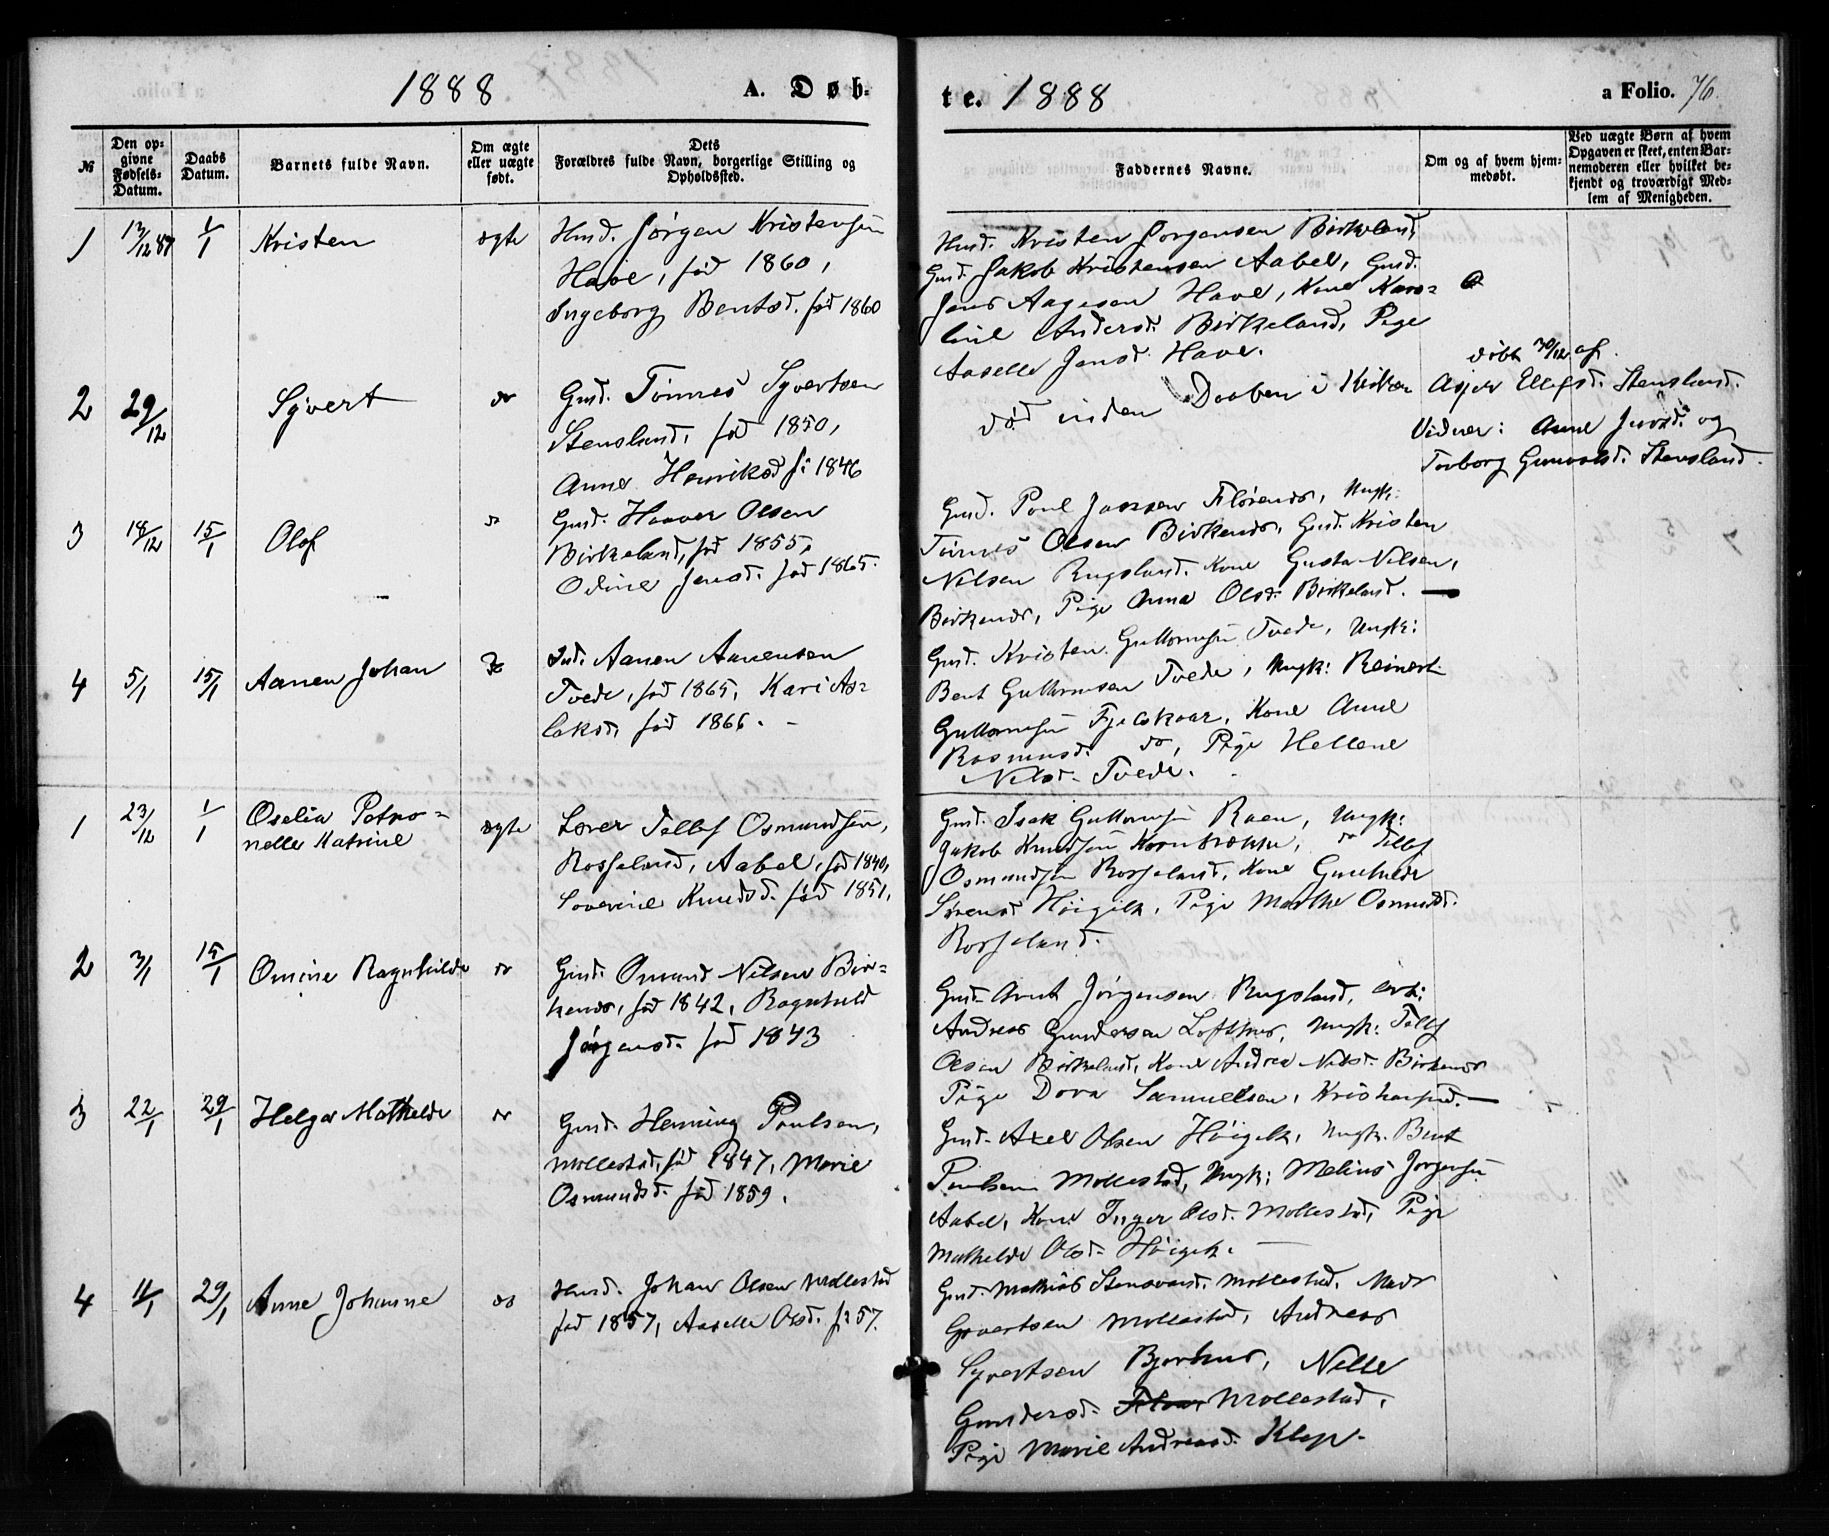 1888 A. Døb-
te. 1888 a Folio. 76.
№
Den op-
givne
Fødsels-
Datum.
Daabs
Datum.
Barnets fulde Navn.
Om ægte
eller uægte
født.
Dets
Forældres fulde Navn, borgerlige Stilling og
Opholdssted.
Faddernes Navne.
Om og af hvem hjem-
medøbt.
Ved uægte Børn af hvem
Opgaven er skeet, enten Bar-
nemoderen eller hvilket be-
kjendt og troværdigt Med-
lem af Menigheden.
1 13/12 87 1/1 Kristen ægte
Hmd. Jørgen Kristensen
Have, fød 1860,
Ingeborg Bentsd. fød 1860
Hmd. Kristen Jørgensen Birkeland,
Gmd. Jakob Kristensen Aabel, Gmd.
Jens Aagesen Have, Kone Karo=
line Andersd. Birkeland, Pige
Aaselle Jensd. Have.
2 29/12 Syvert do
Gmd. Tønnes Syvertsen
Stensland, fød 1850,
Anne Henriksd. f: 1846
død inden Daaben i Kirken
døbt 30/12 af
Asjer Ellefsd. Stensland.
Vidner: Anne og
Torborg Gunvalsd. Stensland.
3 18/12 15/1 Olof do
Gmd. Haaver Olsen
Birkeland, fød 1855,
Odine Jensd. fød 1865.
Gmd. Poul Jaassen Flørenes, Ungk:
Tønnes Olsen Birkenes, Gmd. Kristen
Nilsen Rugsland. Kone Gusta Nilsen,
Birkenes, Pige Anna Olsd. Birkeland. —
4 5/1 15/1 Aanen Johan do
Ind. Aanen Aanensen
Tvede, fød 1865, Kari As=
laksd. fød 1866. -
Gmd. Kristen Guttormsen Tvede, Ungk:
Bent Guttormsen Tvede, Ungk: Reinert
Guttormsen Fjelskaar, Kone Anne
Rasmusd. do, Pige Hellene
Nilsd. Tvede.
1 23/12 1/1 Oselia Petro=
nelle Katrine ægte
Lærer Tellef Osmundsen,
Rosseland, Aabel, fød 1840,
Severine Knudsd. fød 1851.
Gmd. Isak Guttormsen Raen, Ungk:
Jakob Knudsen Kornbrække, do Tellef
Osmundsen Rosseland, Kone Gunhilde
Sørensd. Høigilt, Pige Marthe Osmundsd.
Rosseland.
2 3/1 15/1 Omine Ragnhilde do
Gmd. Osmund Nilsen Bir=
kenes, fød 1842, Ragnhild
Jørgensd. fød 1843
Gmd. Arnt Jørgensen Rugsland, Arb:
Andreas Gundersen Lofthus, Ungk: Tellef
Olsen Birkeland, Kone Andrea Nilsd. Birkenes
Pige Dora Samuelsen, Kristiansand. —
3 22/1 29/1 Helga Mathilde do
Gmd. Henning Poulsen,
Mollestad, fød 1847, Marie
Osmundsd. fød 1859.
Gmd. Axel Olsen Høigilt, Ungk. Bent
Poulsen Mollestad, Ungk: Melius Jørgensen
Aabel, Kone Inger Olsd. Mollestad, Pige
Mathilde Olsd. Høigilt. —
4 11/1 29/1 Anne Johanne do
Hmd. Johan Olsen Mollestad
fød 1857, Aaselle Olsd. f: 57.
Gmd. Mathias Stensvand, Mollestad, Mads
Syvertsen Mollestad, Andreas
Syvertsen Bjorhus, Nille
Gundersd. Mollestad,
Pige Marie Andreasd. Klep.